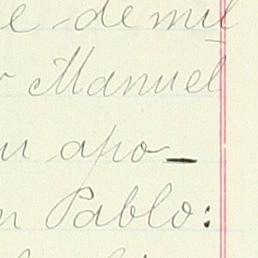 e de mil
Manuel
apo-
n Pablo: